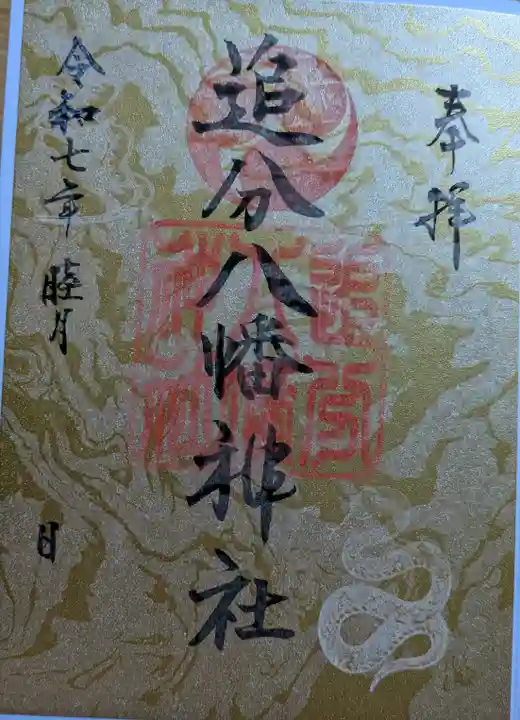 奉拝
追分八幡神社
令和七年 睦月
日